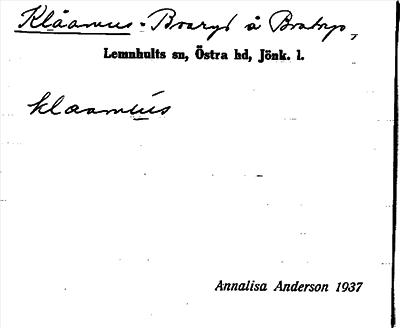 Klåamus - Boaryd å Bratorp,
Lemnhults sn, Östra hd, Jönk. l.
klåamus
Annalisa Anderson 1937